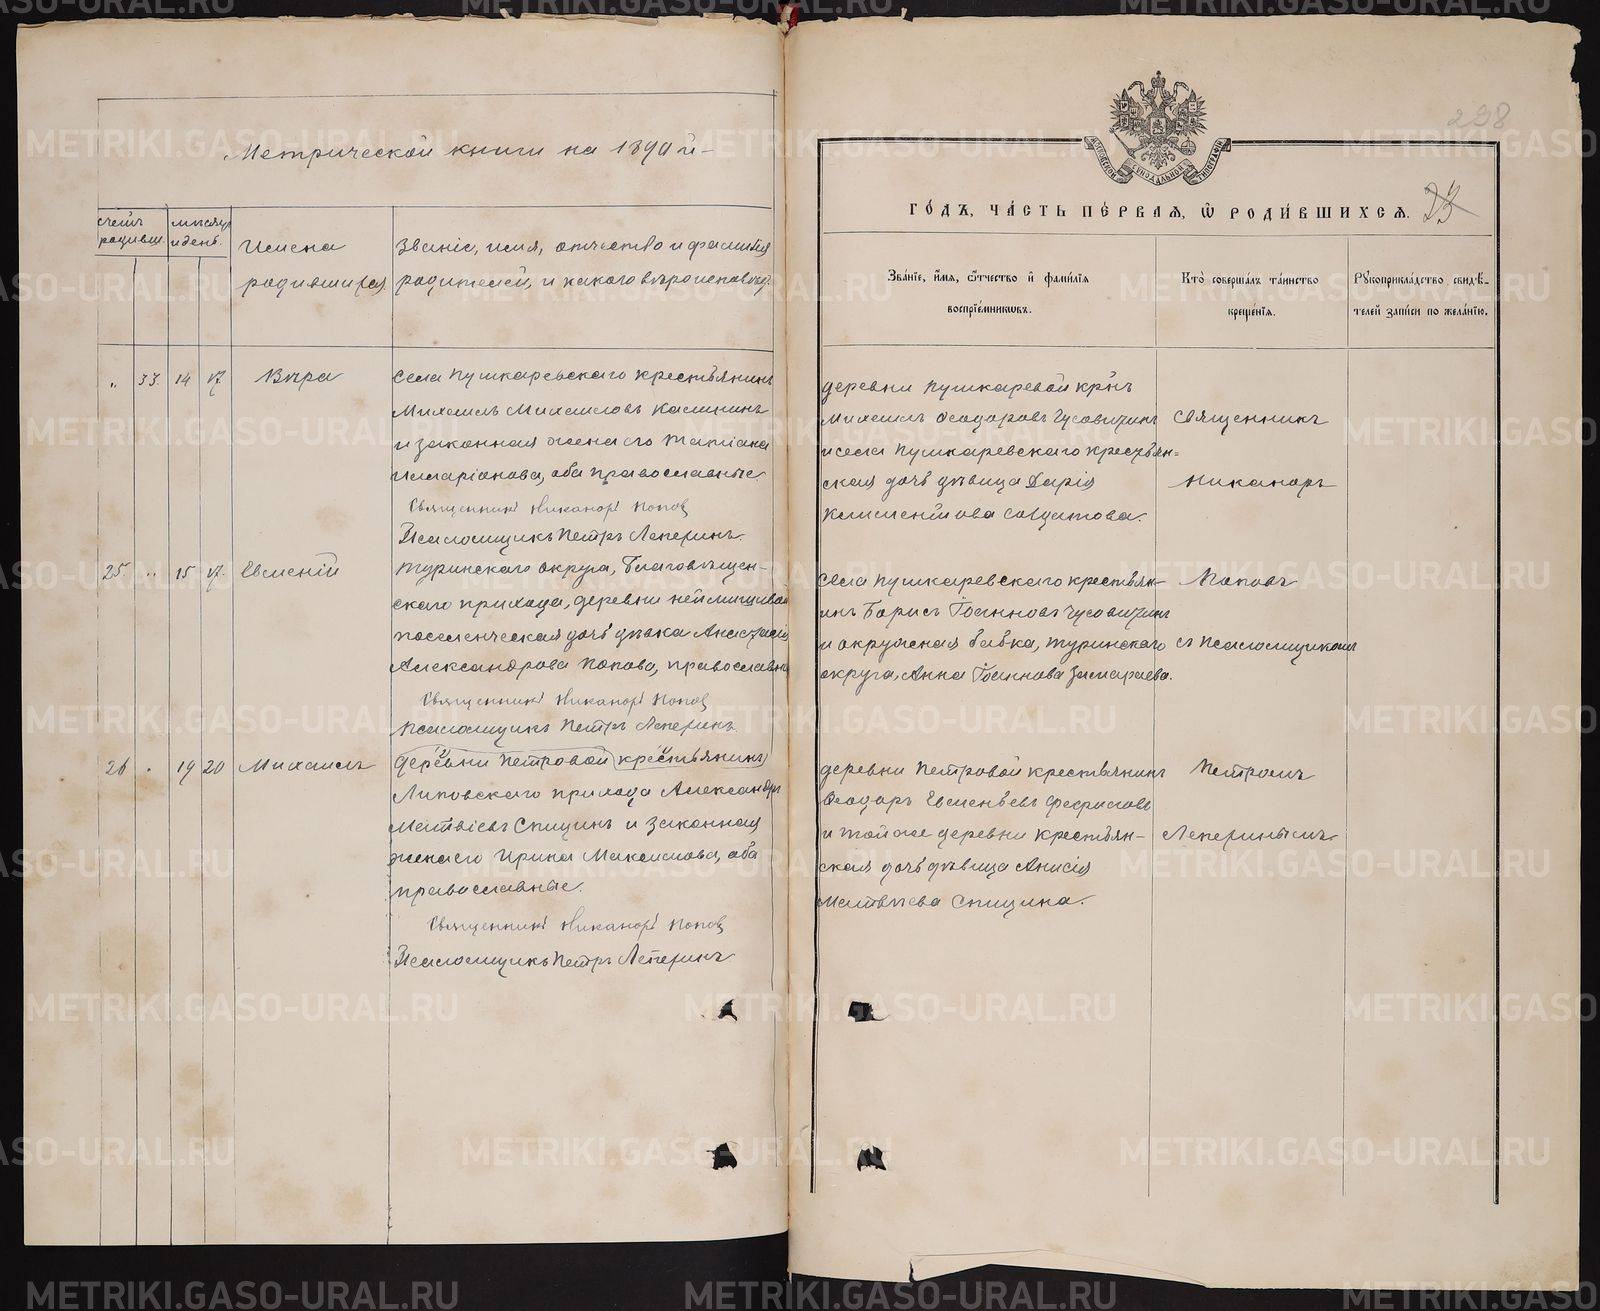 Метрической книги на 1890 й
счетъ родивш.
мѣсяцъ и день.
Имена
родившихся
Званіе, имя, отчество и фамилія
родителей, и какого вѣроисповѣд.
„ 33 14 17 Вѣра
села Пушкаревскаго крестьянинъ
Михаилъ Михаиловъ Калининъ
и законная жена его Татіана
Иларіонова, оба православные.
Священникъ Никаноръ Попов
Псаломщикъ Петръ Леперинъ.
25. „ 15 17. Евмений
Туринскаго округа, Благовѣщен-
скаго прихода, деревни
поселенческая дочь дѣвка Анастасія
Александрова Попова, православная
Священникъ Никаноръ Попов
Псаломщикъ Петръ Леперинъ.
26 „ 19 20 Михаилъ
деревни Петровой крестьянинъ
Липовскаго прихода Александръ
Матвіевъ Спицинъ и законная
жена его Ирина Максимова, оба
православные.
Священникъ Никаноръ Попов
Псаломщикъ Петръ Леперинъ
238
ГО́ДЪ, ЧА́СТЬ ПЕ́РВАЯ, Ѿ РОДИ́ВШИХСЯ.
23
Зва́нїе, и҆́мя, ѻ҆́тчество и҆ фами́лїя
воспрїе́мникѡвъ.
Кто̀ соверша́лъ та́инство
креще́нїя.
Рꙋкоприкла́дство свидѣ́-
телей за́писи по жела́нїю.
деревни Пушкаревой крнъ
Михаилъ Ѳеодоровъ Чусовитинъ
и села Пушкаревскаго крестьян=
ская дочь дѣвица Дарія
Климентіова Солдатова.
Священникъ
Никаноръ
села Пушкаревскаго крестьян-
инъ Борисъ Іоанновъ Чусовитинъ
и окружная бабка, Туринскаго
округа, Анна Іоаннова Замараева.
Поповъ
съ Псаломщикомъ
деревни Петровой крестьянинъ
Ѳеодоръ Евменьевъ
и той же деревни крестьян-
ская дочь дѣвица Анисія
Матвѣева Спицина.
Петромъ
Леперинымъ
METRIKI.GASO-URAL.RU